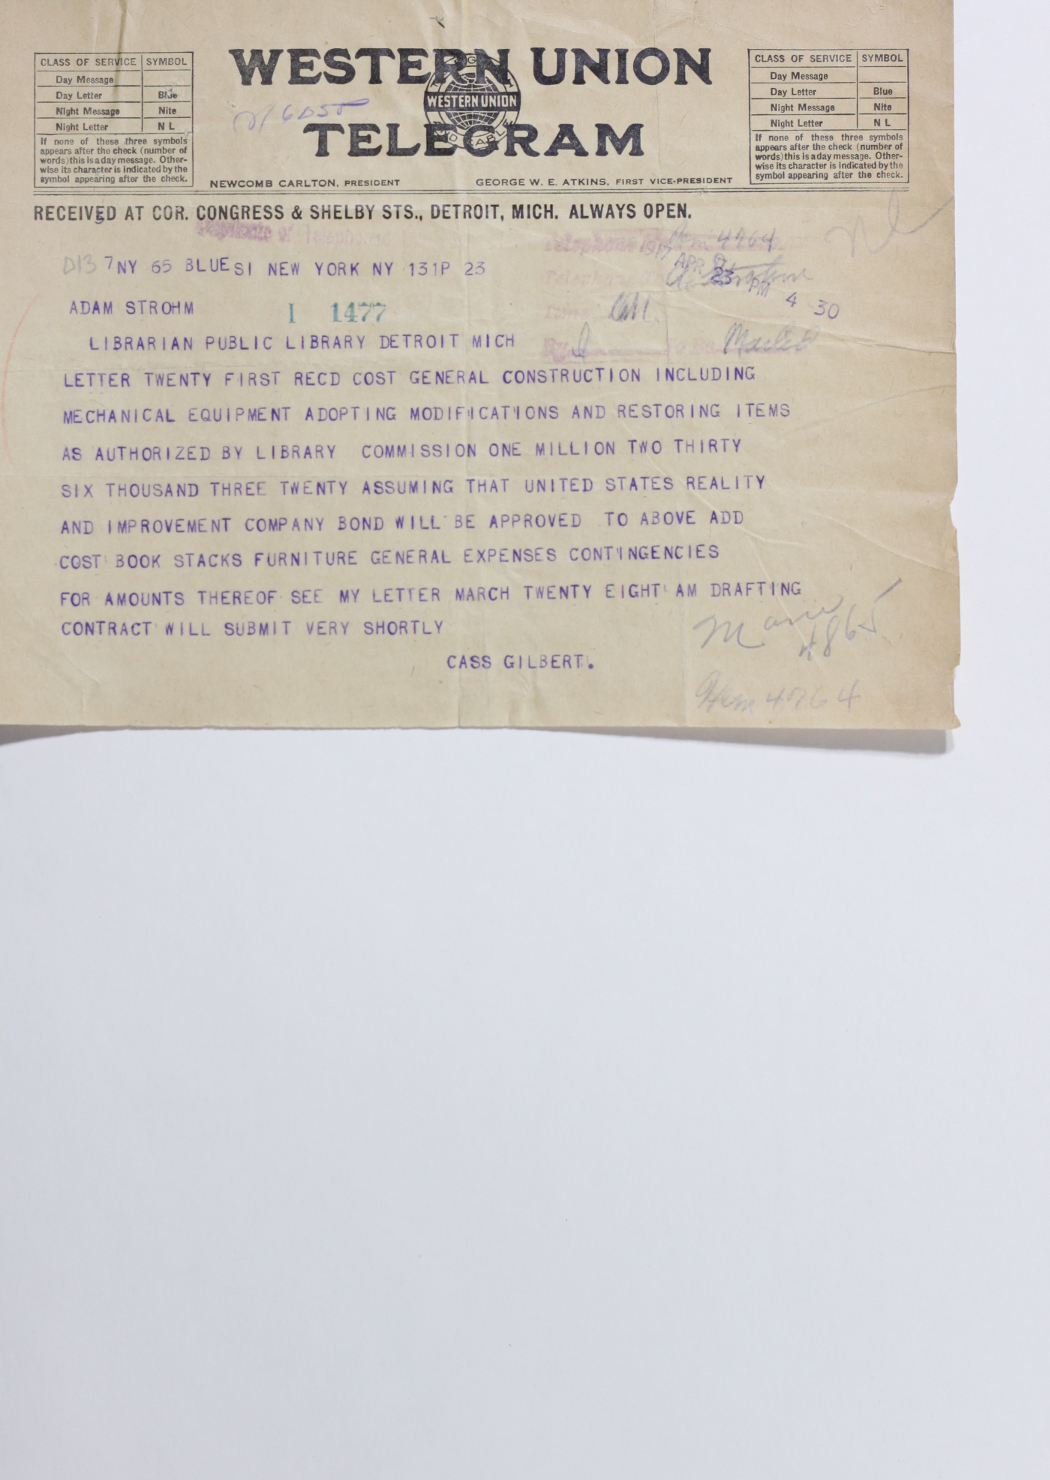 CLASS OF SERVICE SYMBOL
Day Message
Day Letter Blue
Night Message Nite
Night Letter N L
If none of these three symbols
appears after the check (number of
words) this is a day message. Other-
wise its character is indicated by the
symbol appearing after the check.
WESTERN UNION
WESTERN UNION
TELEGRAM
NEWCOMB CARLTON, PRESIDENT GEORGE W. E. ATKINS, FIRST VICE-PRESIDENT
CLASS OF SERVICE SYMBOL
Day Message
Day Letter Blue
Night Message Nite
Night Letter N L
If none of these three symbols
appears after the check (number of
words) this is a day message. Other-
wise its character is indicated by the
symbol appearing after the check.
RECEIVED AT COR. CONGRESS & SHELBY STS., DETROIT, MICH. ALWAYS OPEN.
4764
1917 APR 23 PM 4 30
D13 7NY 65 BLUE SI NEW YORK NY 131P 23
ADAM STROHM
I 1477
LIBRARIAN PUBLIC LIBRARY DETROIT MICH
LETTER TWENTY FIRST RECD COST GENERAL CONSTRUCTION INCLUDING
MECHANICAL EQUIPMENT ADOPTING MODIFICATIONS AND RESTORING ITEMS
AS AUTHORIZED BY LIBRARY COMMISSION ONE MILLION TWO THIRTY
SIX THOUSAND THREE TWENTY ASSUMING THAT UNITED STATES REALITY
AND IMPROVEMENT COMPANY BOND WILL BE APPROVED TO ABOVE ADD
COST BOOK STACKS FURNITURE GENERAL EXPENSES CONTINGENCIES
FOR AMOUNTS THEREOF SEE MY LETTER MARCH TWENTY EIGHT AM DRAFTING
CONTRACT WILL SUBMIT VERY SHORTLY
CASS GILBERT.
Main
4865
4764